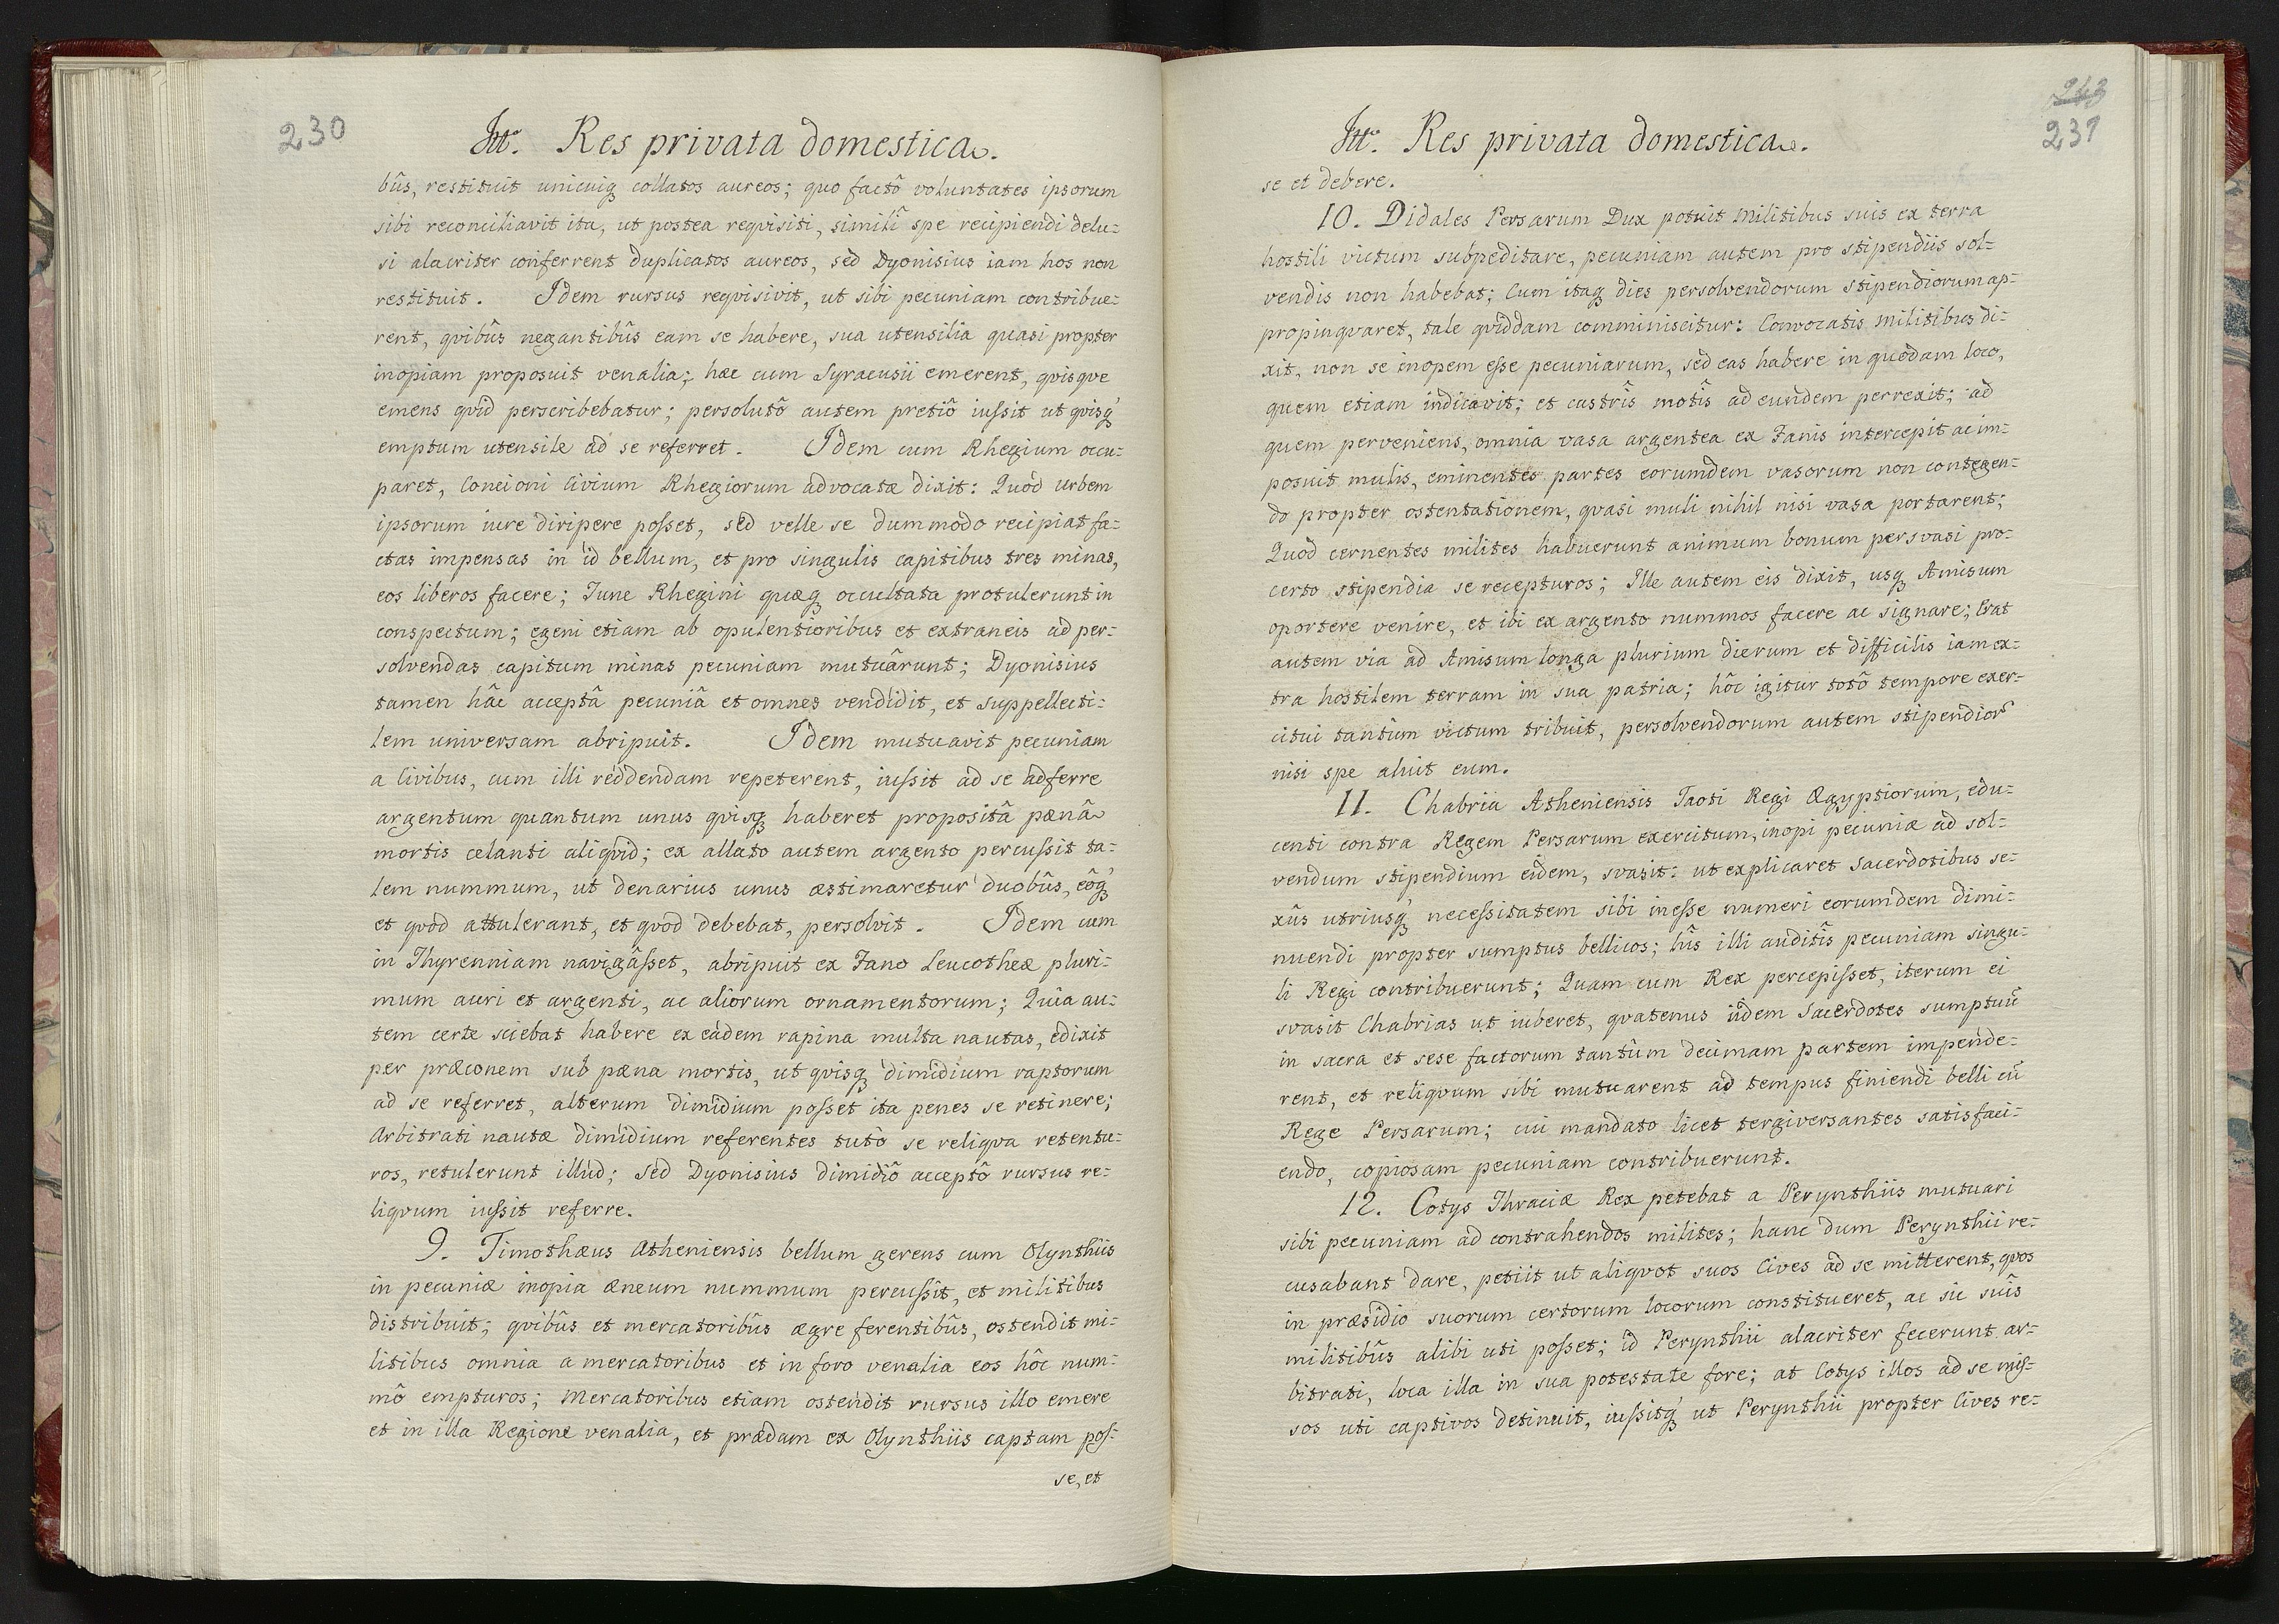 230
Itt. Res privata domestica.
bûs, restituit unicuiq collatos aureos; quo factô voluntates ipsorum
sibi reconciliavit ita, ut postea reqvisiti, simili spe recipiendi delu-
si alacriter conferrent duplicatos aureos, sed Dyonisius iam hos non
restituit. Idem rursus reqvisivit, ut sibi pecuniam contribue-
rent, qvibûs negantibûs eam se habere, sua utensilia quasi propter
inopiam proposuit venalia; hæc cum Syracusii emerent, qvisqve
emens qvid perscribebatur; persolutô autem pretiô iussit ut qvisq
emptum utensile ad se referret. Idem cum Rhegium occu-
paret, Concioni Civium Rhegiorum advocatæ dixit: Quod urbem
ipsorum iure diripere posset, sed velle se dummodo recipiat fa-
ctas impensas in id bellum, et pro singulis capitibus tres minas,
eos liberos facere; Tunc Rhegini quæq occultata protulerunt in
conspectum; egeni etiam ab opulentioribus et extraneis ad per-
solvendas capitum minas pecuniam mutuârunt; Dyonisius
tamen hâc acceptâ pecuniâ et omnes vendidit, et suppellecti-
lem universam abripuit. Idem mutuavit pecuniam
a Civibus, cum illi reddendam repeterent, iussit ad se adferre
argentum quantum unus qvisq haberet propositâ pænâ
mortis celanti aliqvid; ex allato autem argento percussit ta-
lem nummum, ut denarius unus æstimaretur duobûs, eôq
et qvod attulerant, et qvod debebat, persolvit. Idem cum
in Thyrenniam navigâsset, abripuit ex Fano Leucotheæ pluri-
mum auri et argenti, ac aliorum ornamentorum; Quia au-
tem certe sciebat habere ex eâdem rapina multa nautas, edixit
per præconem sub pæna mortis, ut qvisq dimidium raptorum
ad se referret, alterum dimidium posset ita penes se retinere;
Arbitrati nautæ dimidium referentes tutô se reliqva retentu-
ros, retulerunt illud; sed Dyonisius dimidiô acceptô rursus re-
liqvum iussit referre.
9. Timothæus Atheniensis bellum gerens cum Olynthiis
in pecuniæ inopia æneum nummum percussit, et militibus
distribuit; qvibûs et mercatoribûs ægre ferentibûs, ostendit mi-
litibus omnia a mercatoribus et in foro venalia eos hôc num-
mô empturos; Mercatoribus etiam ostendit rursus illo emere
et in illa Regione venalia, et prædam ex Olynthiis captam pos-
se, et
243
231
Itt. Res privata domestica.
se et debere.
10. Didales Persarum Dux potuit militibus suis ex terra
hostili victum subpeditare, pecuniam autem pro stipendiis sol-
vendis non habebat; Cum itaq dies persolvendorum stipendiorum ap-
propinqvaret, tale qviddam comminiscitur: Convocatis militibus di-
xit, non se inopem esse pecuniarum, sed eas habere in quodam loco,
quem etiam indicavit; et castrîs motîs ad eundem perrexit; ad
quem perveniens, omnia vasa argentea ex Fanis intercepit ac im-
posuit mulis, eminentes partes eorumdem vasorum non contegen-
do propter ostentationem, qvasi muli nihil nisi vasa portarent;
Quod cernentes milites habuerunt animum bonum persvasi pro-
certo stipendia se recepturos; Ille autem eis dixit, usq Amisum
oportere venire, et ibi ex argento nummos facere ac signare; Erat
autem via ad Amisum longa plurium dierum et difficilis iam ex-
tra hostilem terram in sua patria; hôc igitur totô tempore exer-
citui tantùm victum tribuit, persolvendorum autem stipendior
nisi spe aluit eum.
11. Chabria Atheniensis Taoti Regi Ægyptiorum, edu-
centi contra Regem Persarum exercitum, inopi pecuniæ ad sol-
vendum stipendium eidem, svasit: ut explicaret Sacerdotibus se-
xûs utriusq necessitatem sibi inesse numeri eorumdem dimi-
nuendi propter sumptus bellicos; hîs illi auditîs pecuniam singu-
li Regi contribuerunt; Quam cum Rex percepisset, iterum ei
svasit Chabrias ut iuberet, qvatenus iidem Sacerdotes sumptuū
in sacra et sese factorum tantùm decimam partem impende-
rent, et reliqvum sibi mutuarent ad tempus finiendi belli cū
Rege Persarum; cui mandato licet tergiversantes satisfaci-
endo, copiosam pecuniam contribuerunt.
12. Cotys Thraciæ Rex petebat a Perynthiis mutuari
sibi pecuniam ad contrahendos milites; hanc dum Perynthii re-
cusabant dare, petiit ut aliqvot suos Cives ad se mitterent, qvos
in præsidio suorum certorum locorum constitueret, ac sic suîs
militibûs alibi uti posset; id Perynthii alacriter fecerunt ar-
bitrati, loca illa in sua potestate fore; at Cotys illos ad se mis-
sos uti captivos detinuit, iussitq ut Perynthii propter Cives re-